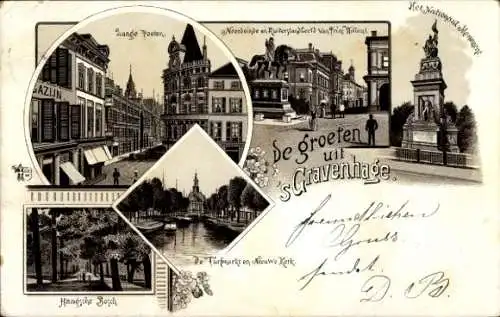 Lange Pooten.
Noordeinde en Ruiterstandbeeld van Prins Willem I.
Het Nationaal Monument
GAZIJN
De groeten
uit
's Gravenhage.
freundlichen
Gruß
sendet
D. B.
De Turfmarkt en Nieuwe Kerk.
Haagsche Bosch.